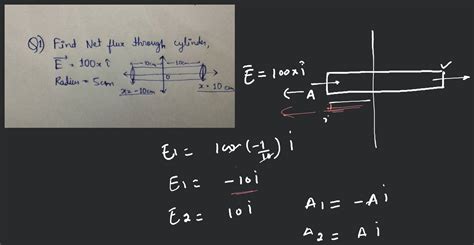 Q1) Find Net flux through cylinder,
E⃗ = 100x î
Radius = 5cm
10cm 10cm
O
x=-10cm x=10cm
E⃗ = 100xî
A
E1 = 100(-1/10) i
E1 = -10i
E2 = 10i
A1 = -Ai
A2 = Ai